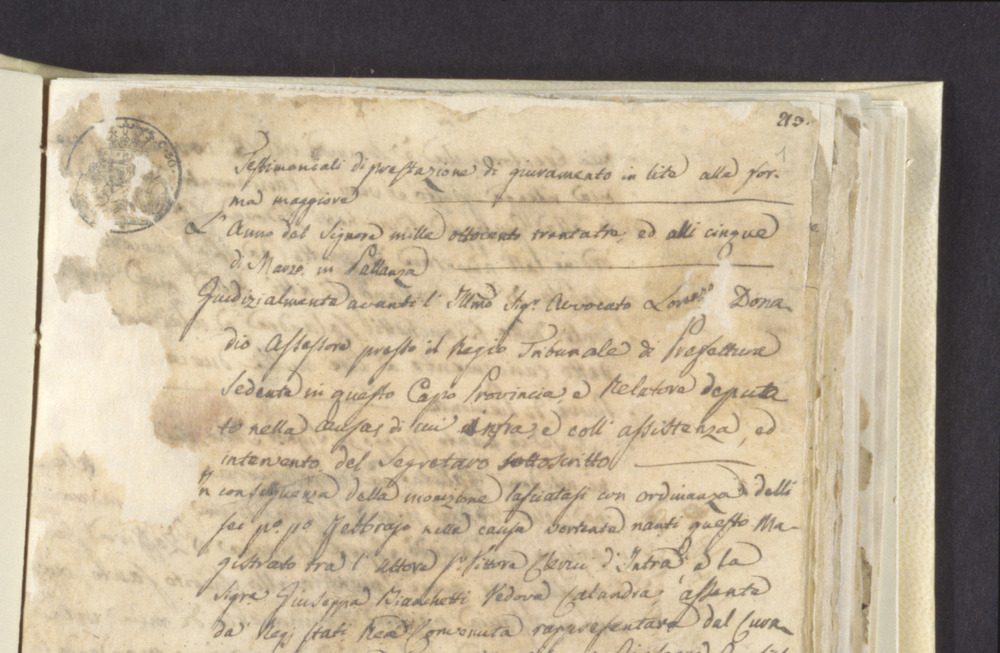 213.
Testimoniali di prestazione di giuramento in lite alla for-
ma maggiore
L'Anno del Signore mille ottocento trentatre, ed alli cinque
di Marzo, in Pallanza
Giudizialmente avanti l'Illmo Sigr. Avvocato Lorenzo Dona-
dio Assessore presso il Regio Tribunale di Prefettura
sedente in questo Capo Provincia e Relatore deputa
to nella Causa di cui infra, e coll'assistenza, ed
intervento del Segretaro sottoscritto
In conseguenza della monizione lasciatasi con ordinanza delli
sei po. po. Febbrajo nella causa vertente nanti questo Ma-
gistrato tra l'Attore Sr. Vittore Clerici d'Intra, e la
Sigra. Giuseppa Bianchetti Vedova Calandra, assente
da' Regj Stati Rea Convenuta rappresentata dal Cura-